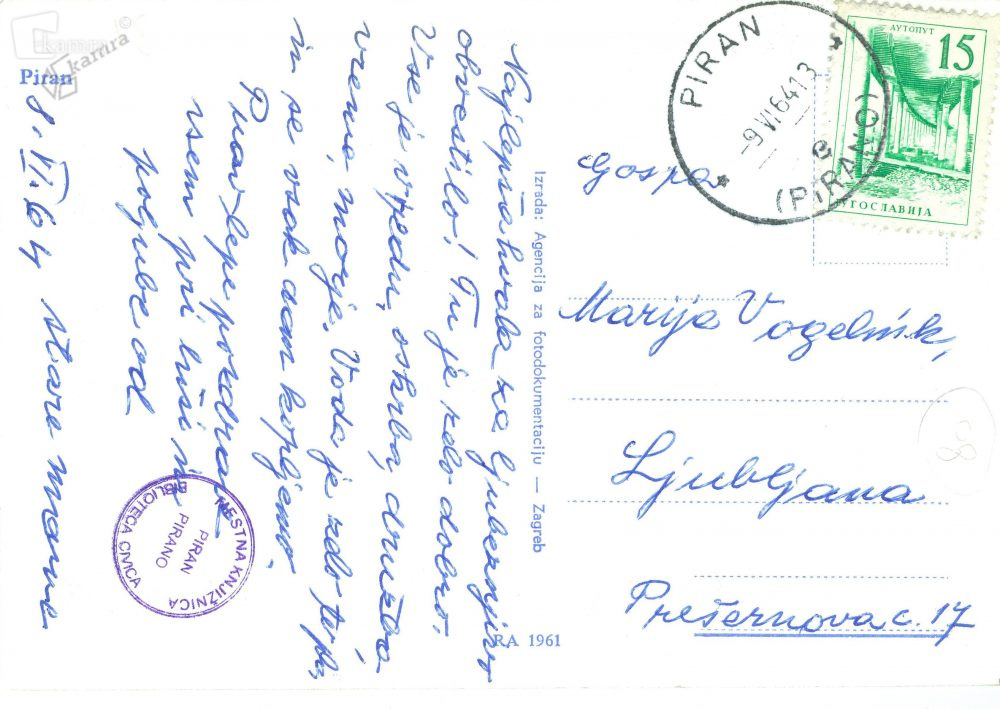 kamra
kamra
Piran
8. VI. 64
Najlepša hvala za ljubeznjivo
obvestilo! Tu je zelo dobro.
Vse je v redu, oskrba, družba,
vreme, morje. Voda je zelo topla
in se vsak dan kopljemo.
Prav lepe pozdrave
vsem pri hiši in
poljube od
stare mame
MESTNA KNJIŽNICA
PIRAN
PIRANO
BIBLIOTECA CIVICA
Izrada: Agencija za fotodokumentaciju — Zagreb
RA 1961
PIRAN
-9 VI 64 13
e
(PIRANO)
АУТОПУТ
15
ЈУГОСЛАВИЈА
Gospa
Marija Vogelnik,
Ljubljana
Prešernova c. 17